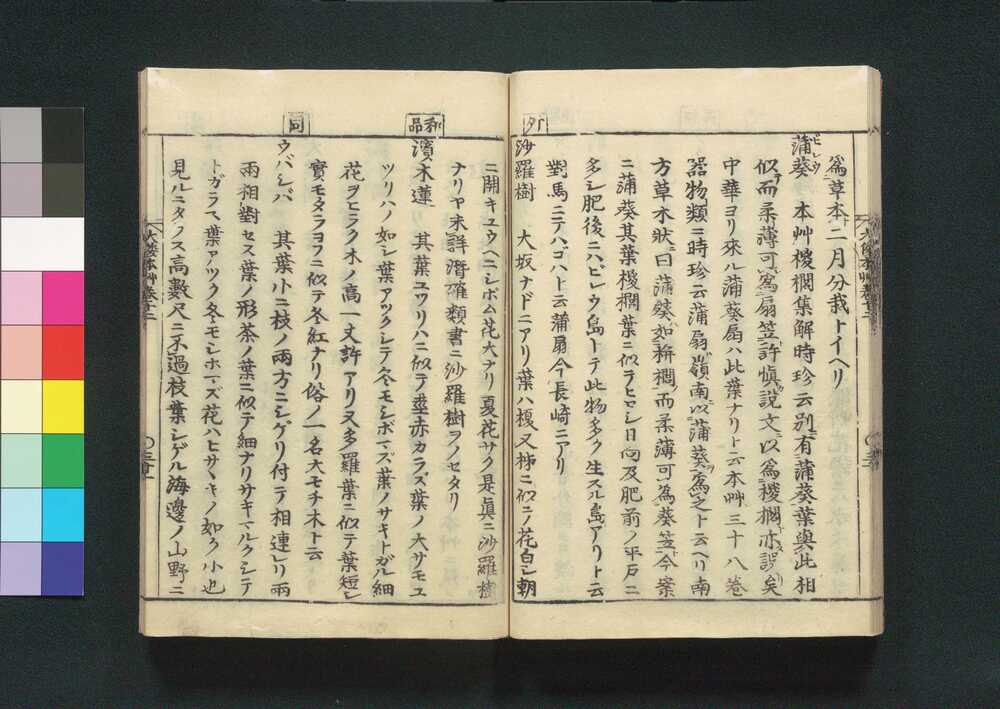 為草本二月分栽トイヘリ
蒲葵 ビレウ 本艸椶櫚集解時珍云別有蒲葵葉與此相
似而柔薄可為扇笠許慎說文以為椶櫚亦誤矣
中華ヨリ來ル蒲葵扇ハ此葉ナリト云本艸三十八巻
器物類ニ時珍云蒲扇嶺南以蒲葵為之ト云ヘリ南
方草木狀曰蒲葵如栟櫚而柔薄可為葵笠今案
ニ蒲葵其葉椶櫚葉ニ似テヒロシ日向及肥前ノ平戸ニ
多シ肥後ニハビレウ島トテ此物多ク生スル島アリト云
對馬ニテハゴハト云蒲扇今長崎ニアリ
外
沙羅樹 大坂ナドニアリ葉ハ榎又柹ニ似ニノ花白シ朝
ニ開キユウヘニシボム花大ナリ夏花サク是真ニ沙羅樹
ナリヤ未詳潛確類書ニ沙羅樹ヲノセタリ
和品
濱木蓮 其葉ユヅリハニ似テ莖赤カラズ葉ノ大サモユ
ツリハノ如シ葉アツクシテ冬モシボマズ葉ノサキトガル細
花ヲヒラク木ノ高一丈許アリ又多羅葉ニ似テ葉短シ
實モタラヨフニ似テ冬紅ナリ俗ノ一名大モチ木ト云
同
ウバシバ 其葉小ニ枝ノ両方ニシゲリ付テ相連レリ両
両相對セス葉ノ形茶ノ葉ニ似テ細ナリサキマルクシテ
トガラズ葉アツク冬モシホマズ花ハヒサヽキノ如ク小也
見ルニタラス高數尺ニ不過枝葉シゲル海邊ノ山野ニ
大倭本艸巻十二